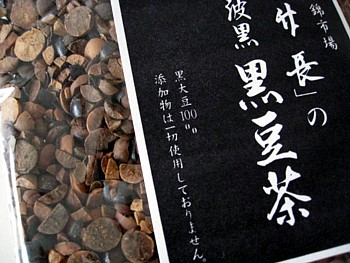 錦市場
長」の
波黒
黒豆茶
黒大豆100%
添加物は一切使用しておりません。